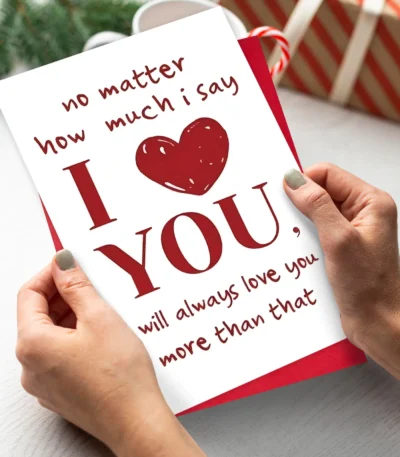 no matter
how much i say
I ❤
YOU,
will always love you
more than that